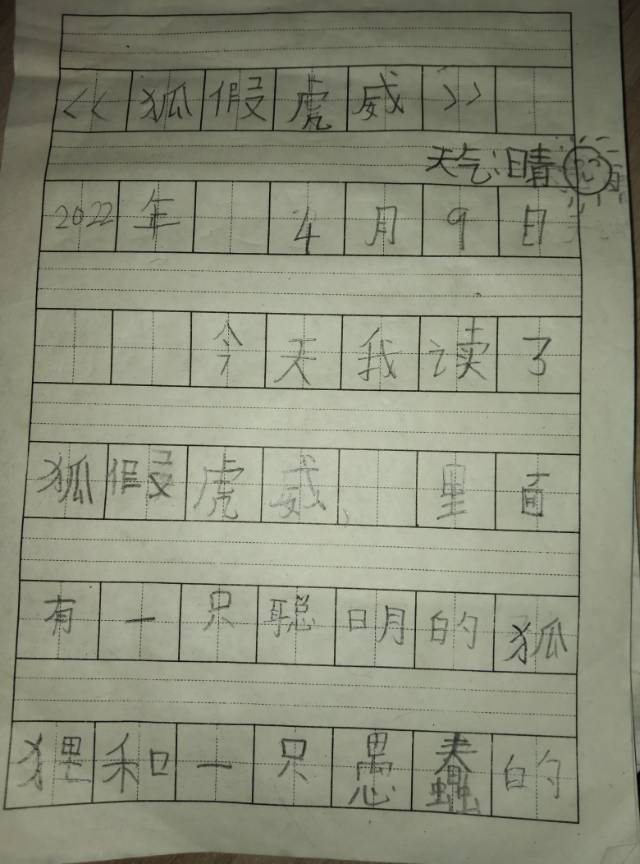 《狐假虎威》
天气:晴
2022年 4月9日
今天我读了
狐假虎威,里面
有一只聪明的狐
狸和一只愚蠢的